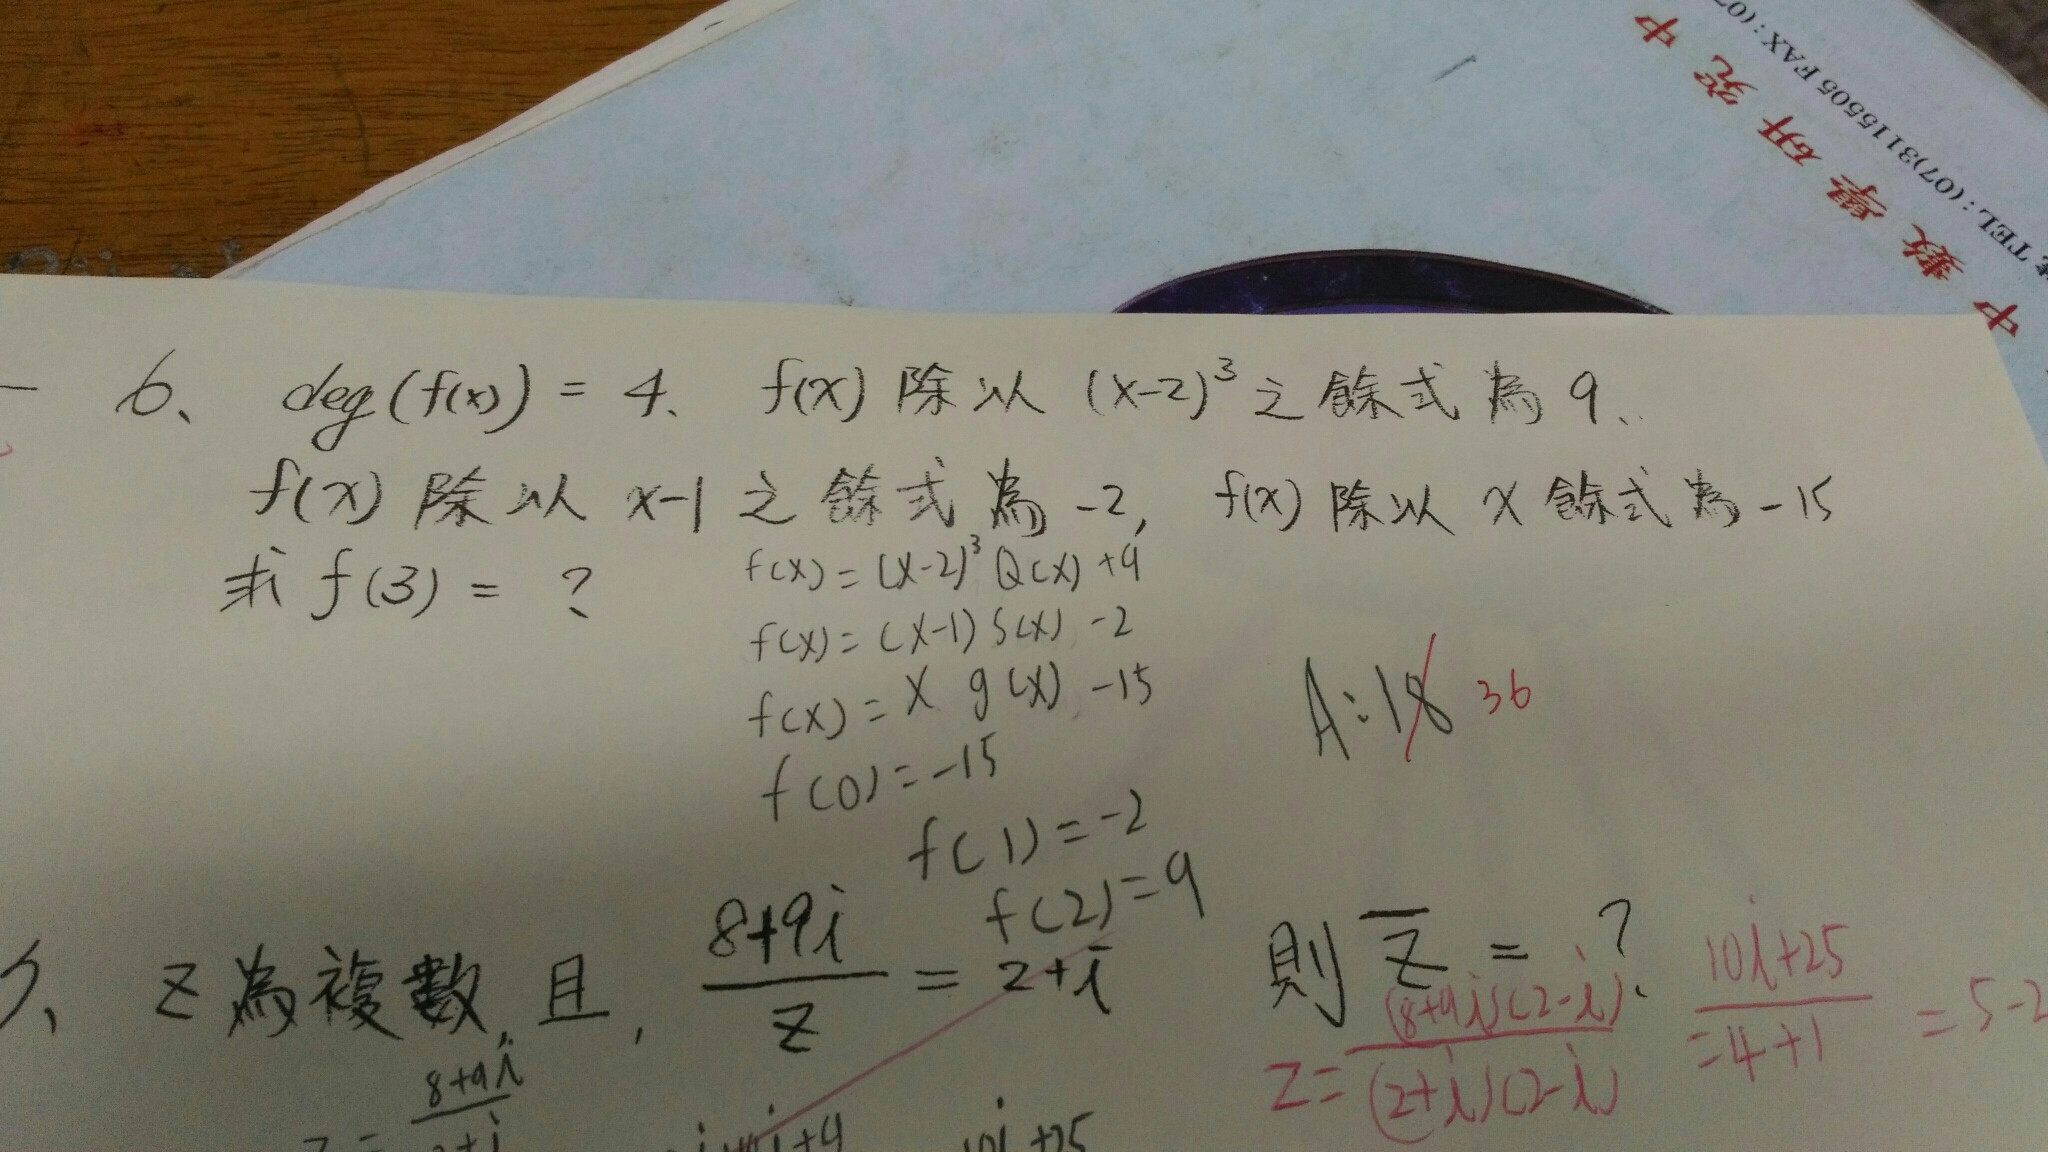 中數學研究中
TEL:(07)3115505 FAX:(07
6、 deg(f(x)) = 4、 f(x) 除以 (x-2)³ 之餘式為 9、
f(x) 除以 x-1 之餘式為 -2, f(x) 除以 x 餘式為 -15
求 f(3) = ?
f(x) = (x-2)³ Q(x) +9
f(x) = (x-1) S(x) -2
f(x) = x g(x) -15
f(0) = -15
f(1) = -2
f(2) = 9
A:18 36
z 為複數, 且, 8+9i/z = 2+i 則 z̅ = ?
z = (8+9i)(2-i)/(2+i)(2-i) = 10i+25/4+1 = 5-2
8+9i
i+4 10i+25